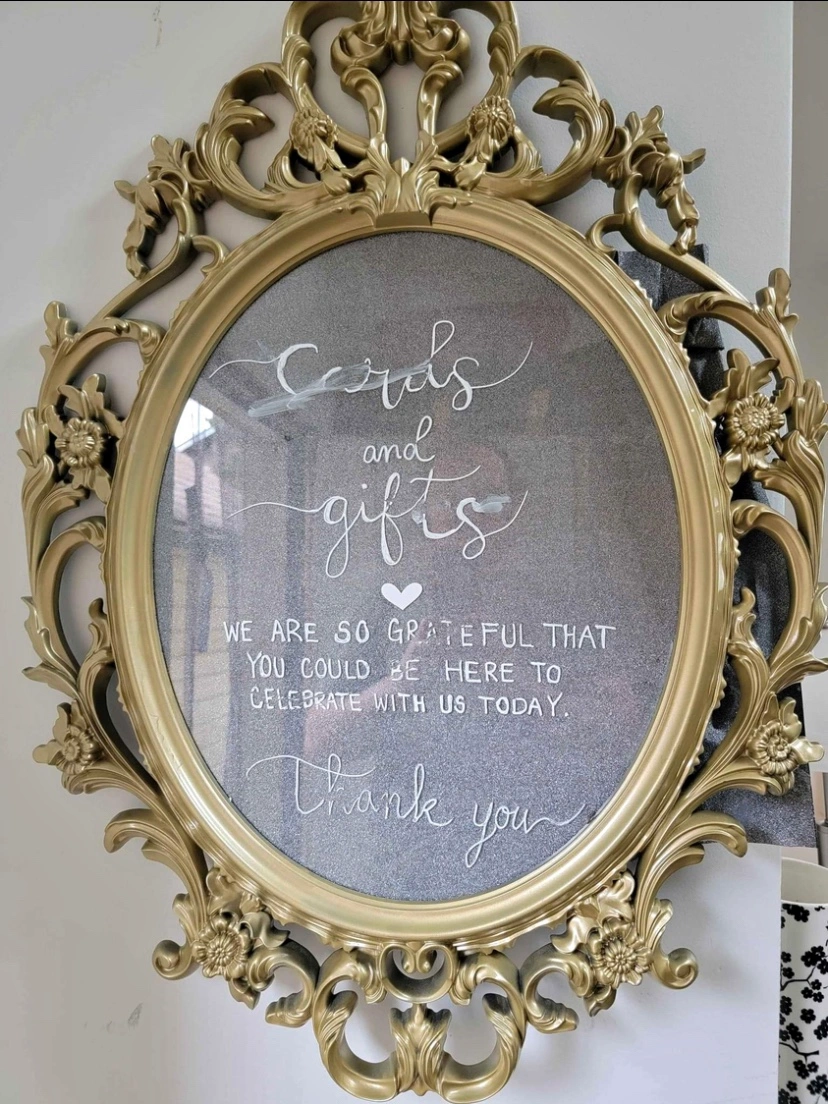 cards
and
gifts
WE ARE SO GRATEFUL THAT
YOU COULD BE HERE TO
CELEBRATE WITH US TODAY.
Thank you